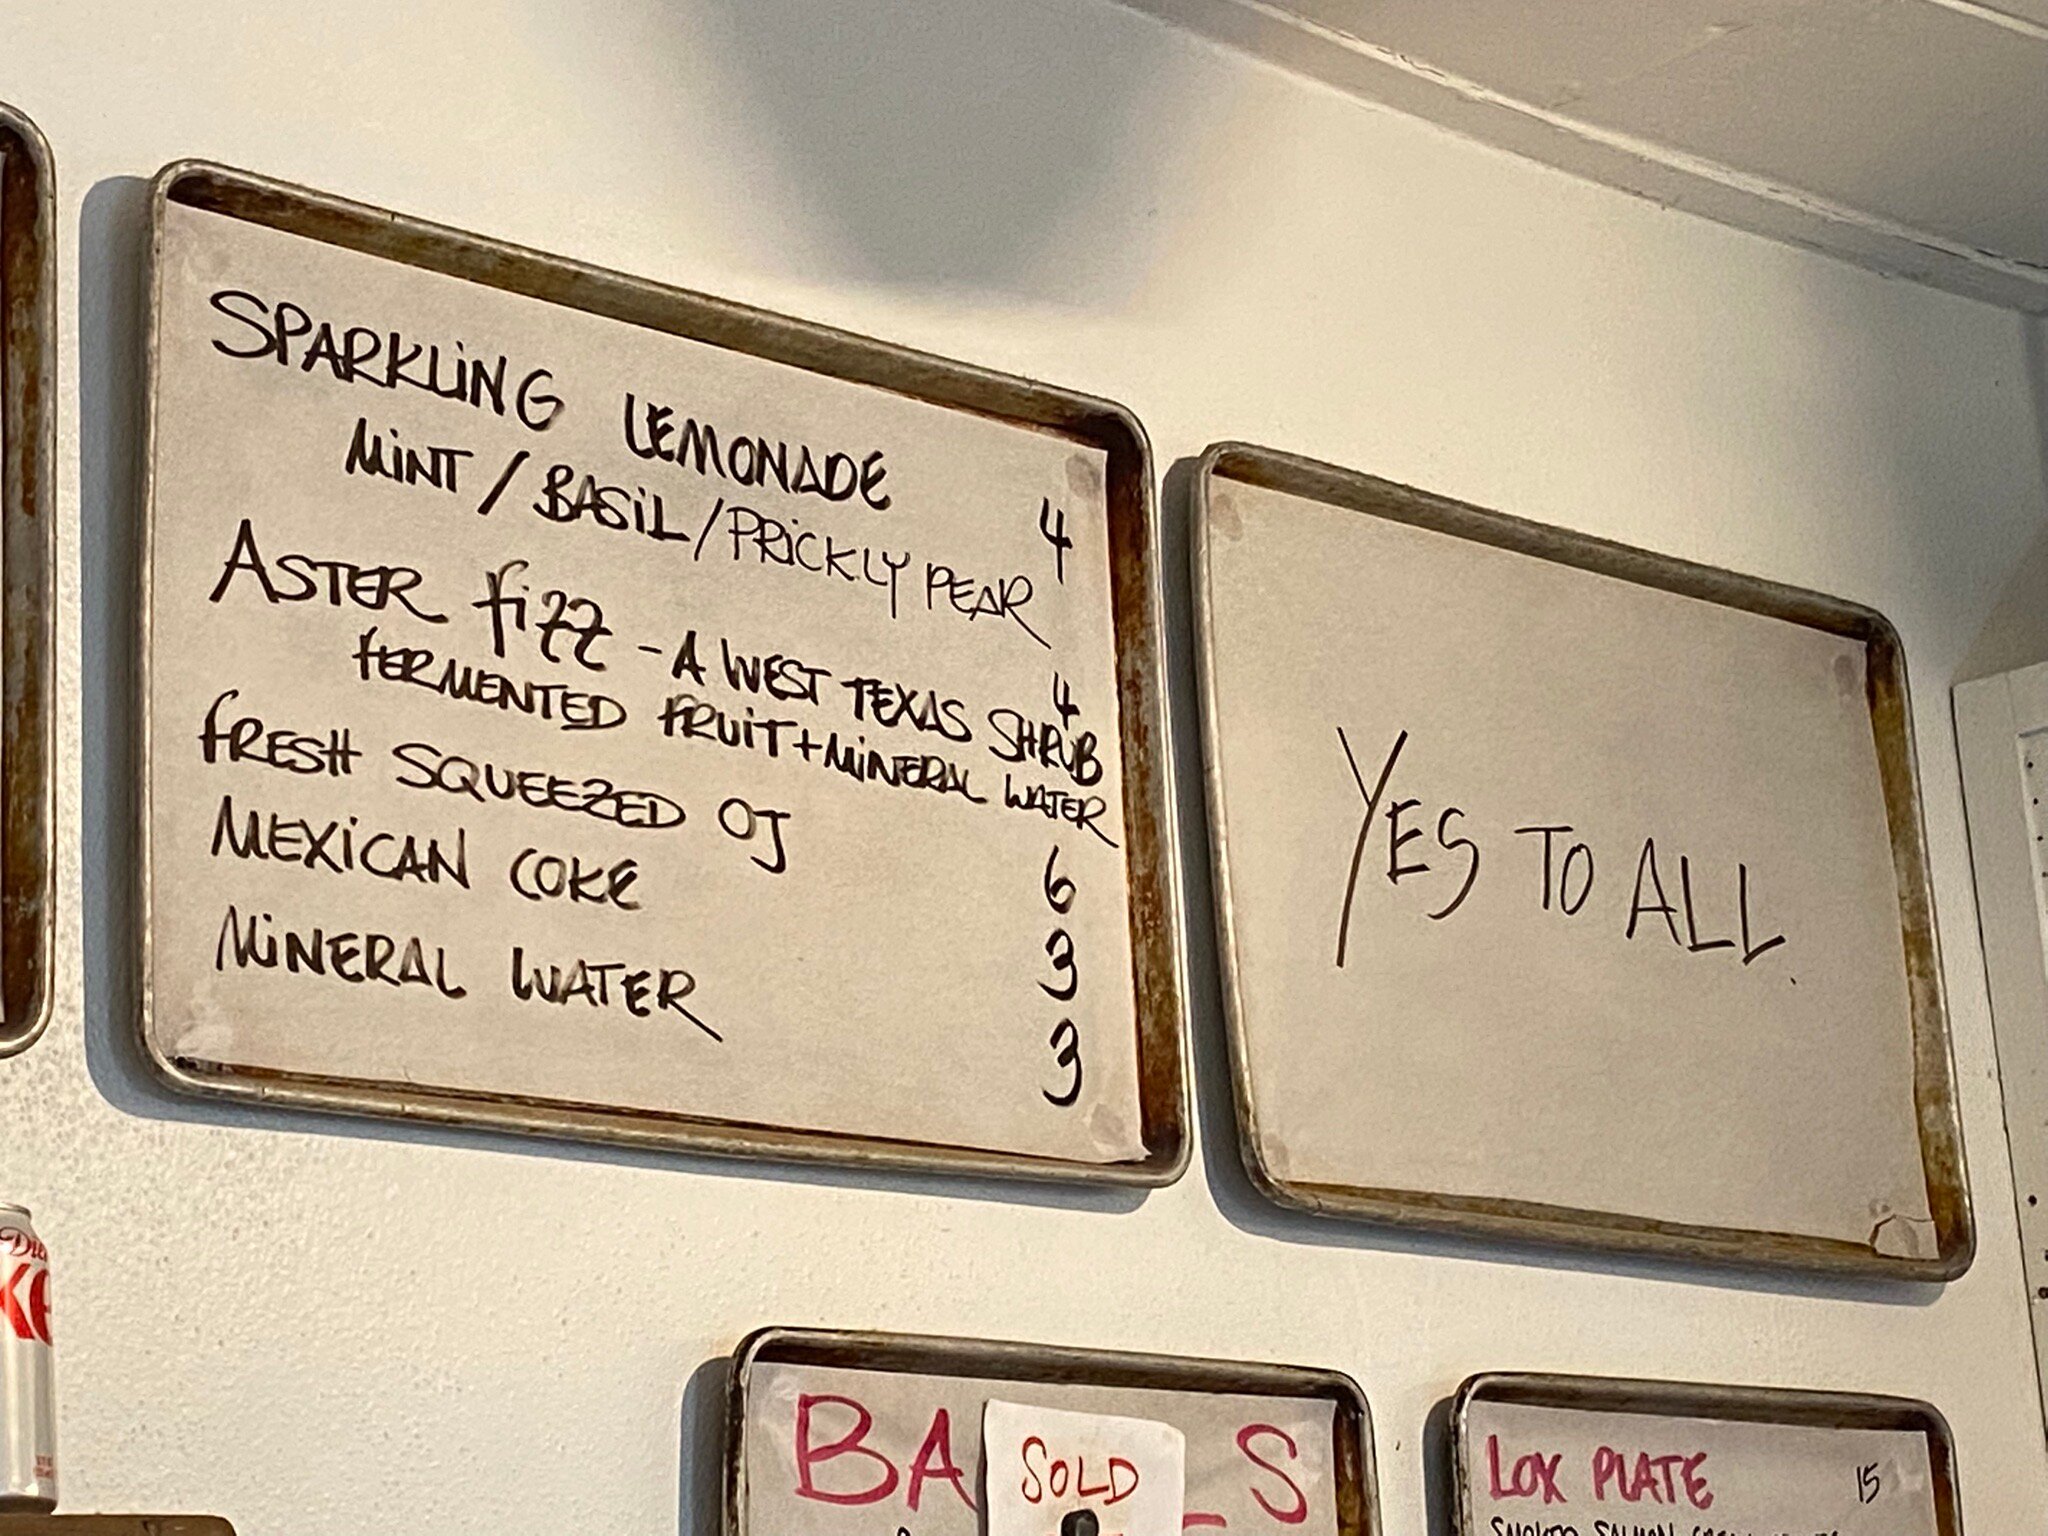 SPARKLING LEMONADE 4
MINT / BASIL / PRICKLY PEAR
ASTER fizz - A WEST TEXAS SHRUB 4
FERMENTED FRUIT + MINERAL WATER
FRESH SQUEEZED OJ 6
MEXICAN COKE 3
MINERAL WATER 3
YES TO ALL.
SOLD
LOX PLATE 15
SMOKED SALMON